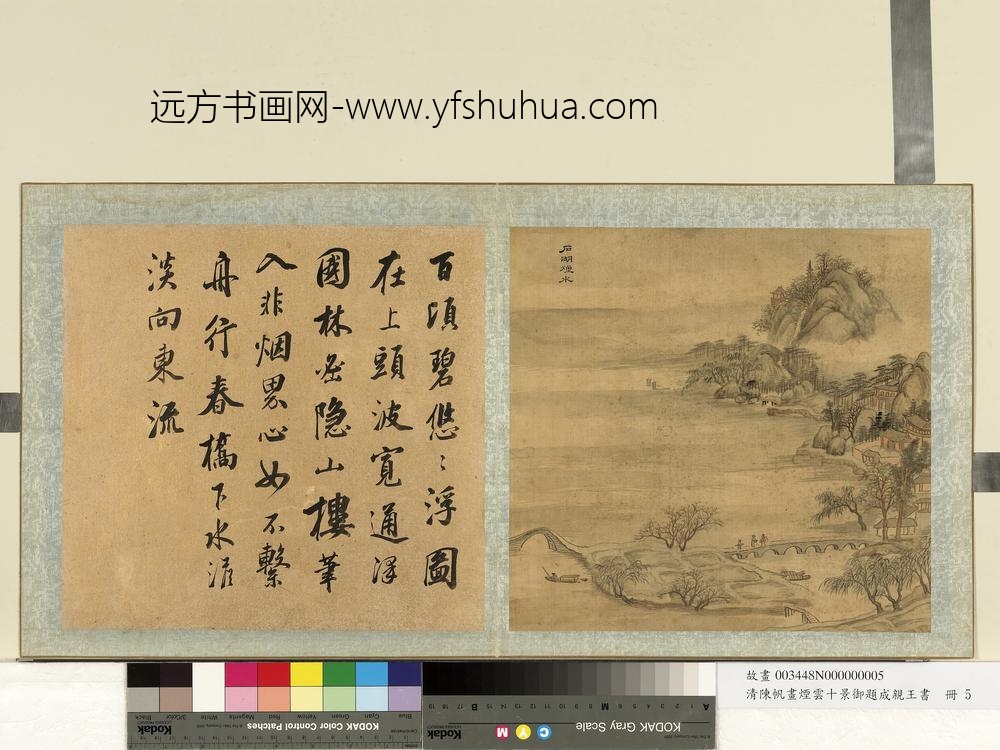 远方书画网-www.yfshuhua.com
石湖煙水
百頃碧悠〻浮圖
在上頭波寬通澤
國林密隐山樓筆
入非烟界心如不繫
舟行春橋下水
淡向東流
故畫 003448N000000005
清陳帆畫煙雲十景御題成親王書 冊 5
KODAK Color Control Patches
Blue Cyan Green Yellow Red Magenta White 3/Color Black
Kodak
KODAK Gray Scale
C Y M
Kodak
A 1 2 3 4 5 6 M 8 9 10 11 12 13 14 15 B 17 18 19